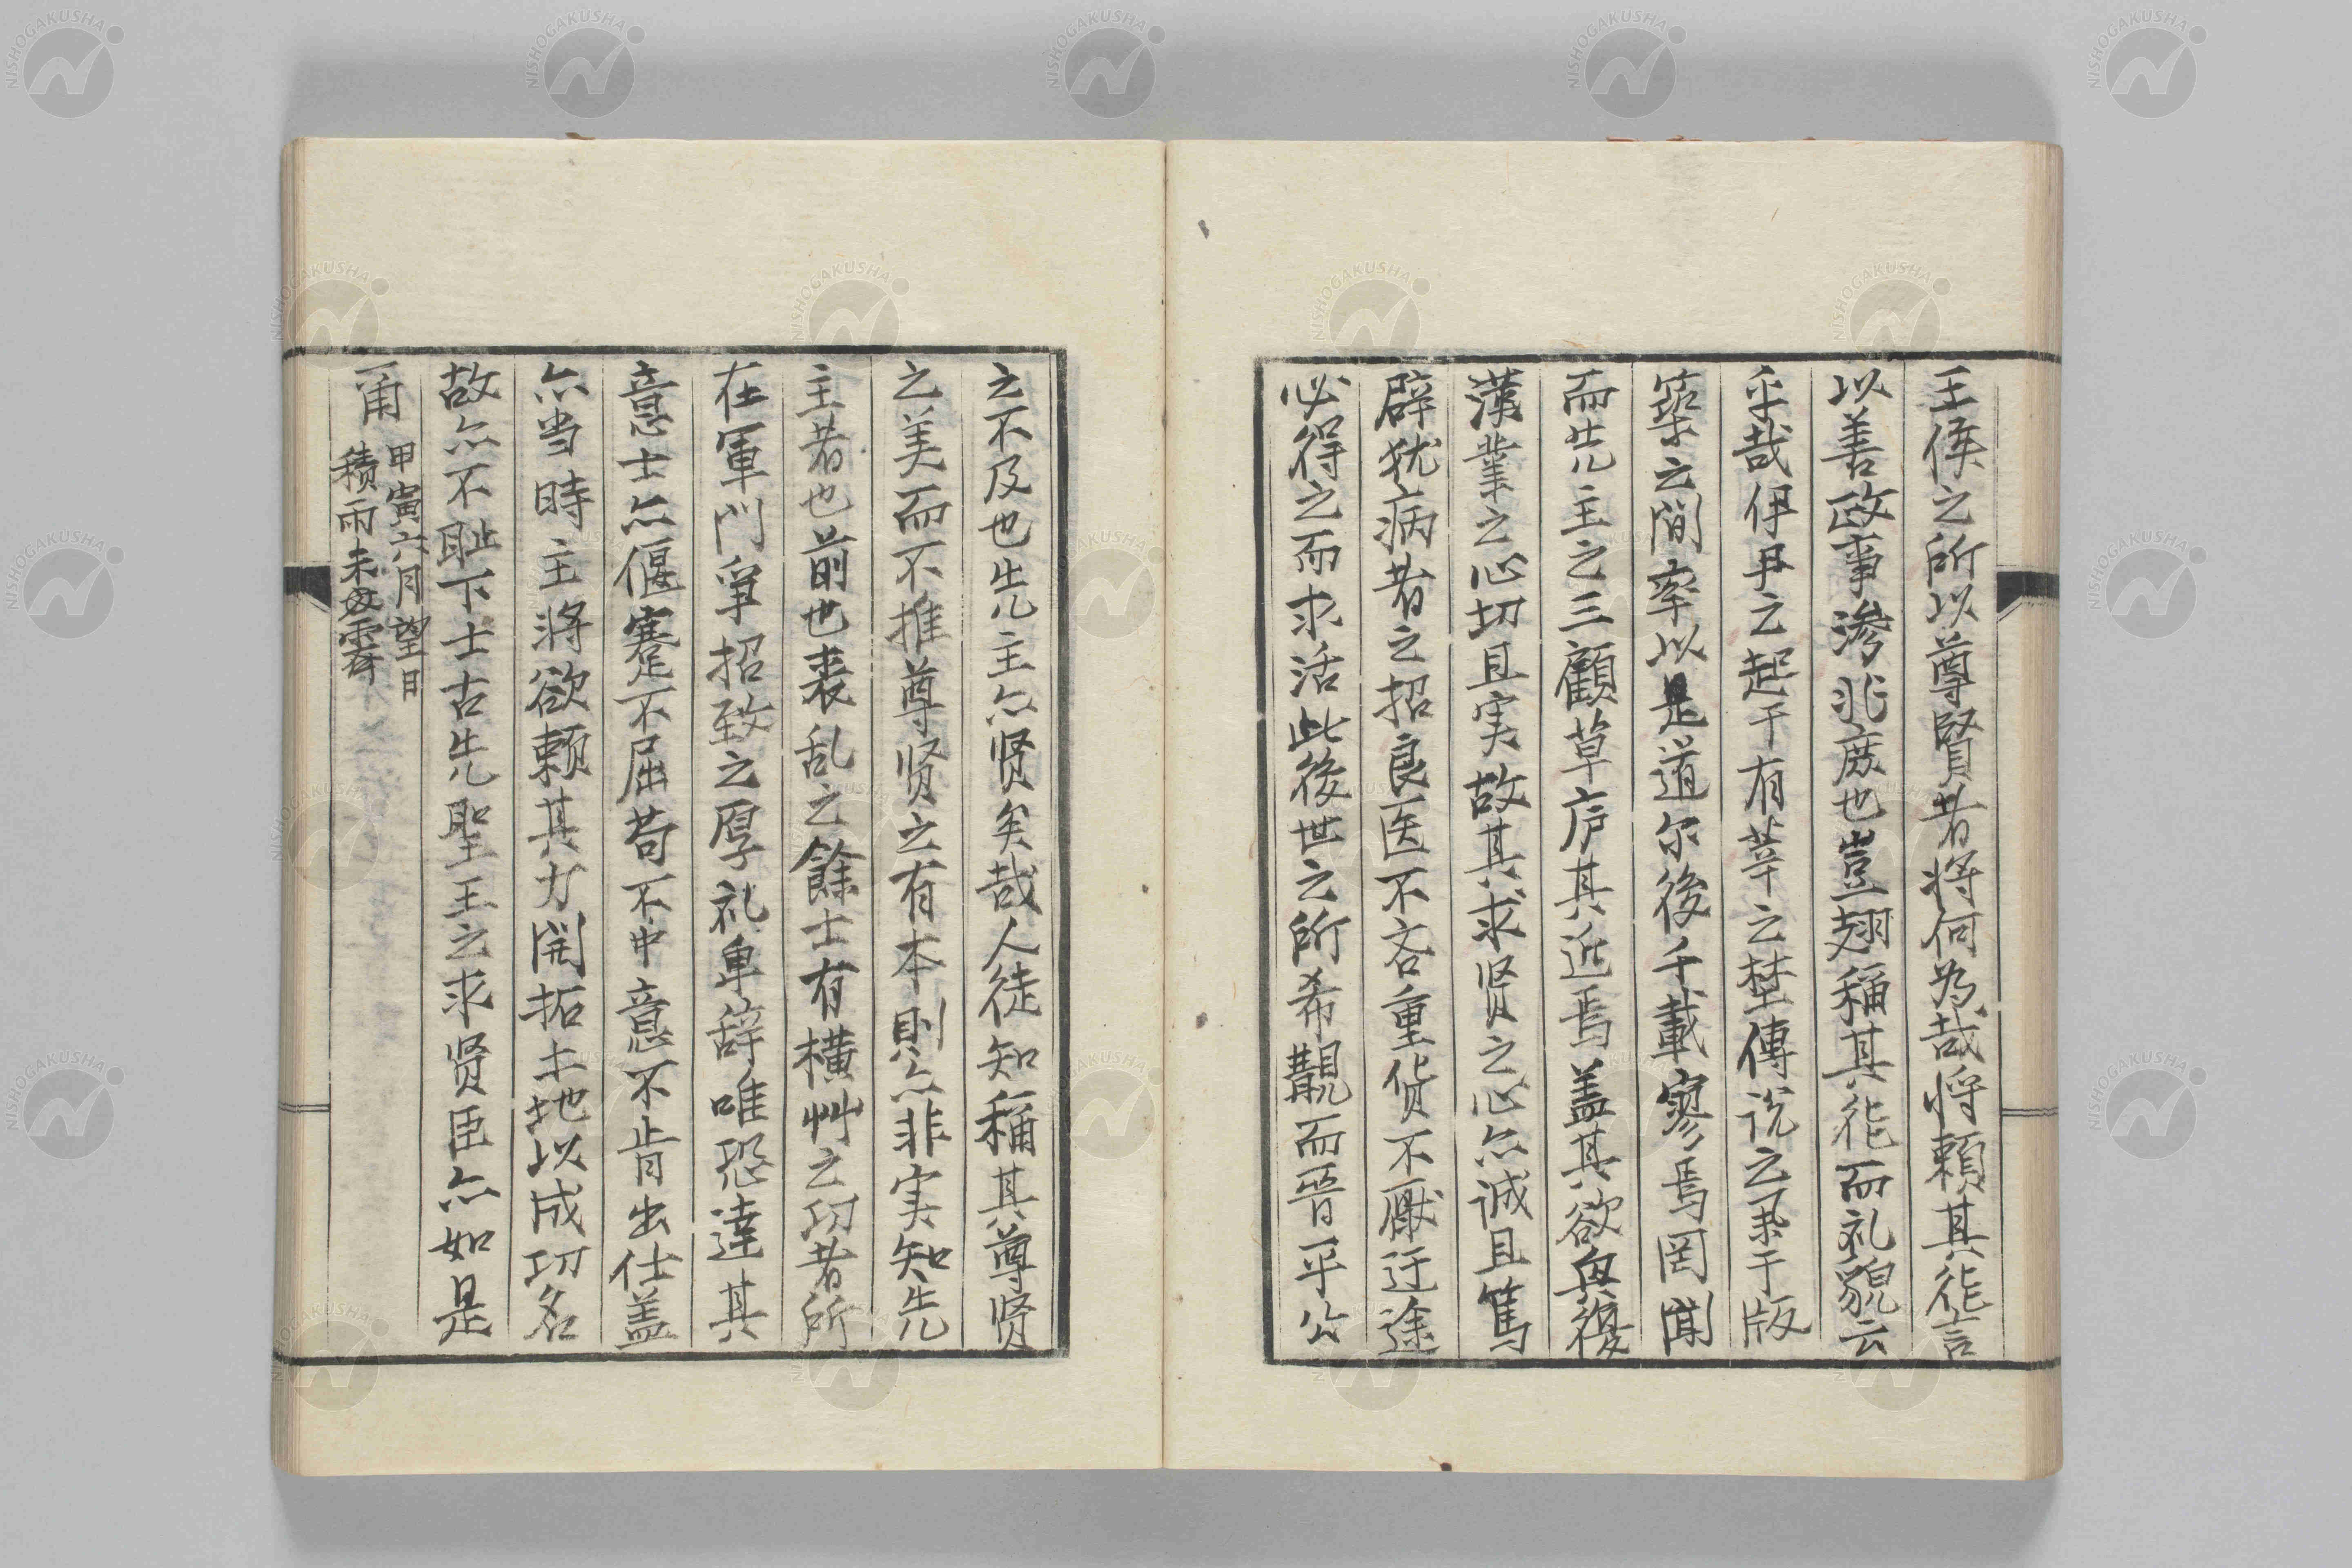 王侯之所以尊賢者将何為哉将頼其能言
以善政事滲兆庶也豈翅稱其能而礼貌云
乎哉伊尹之起于有莘之埜傅説之挙于版
築之間率以是道尔後千載寥焉罔聞
而先主之三顧草庐其近焉盖其欲興復
漢業之心切且実故其求贤之心亦诚且篤
辟犹病者之招良医不吝重货不厭迂途
必得之而求活此後世之所希覯而晋平公
之不及也先主亦贤矣哉人徒知稱其尊贤
之美而不推尊贤之有本則亦非実知先
主者也前也喪乱之餘士有横艸之功者所
在軍門爭招致之厚礼卑辞唯恐違其
意士亦偃蹇不屈苟不中意不肯出仕盖
亦当時主将欲頼其力開拓土地以成功名
故亦不耻下士古先聖王之求贤臣亦如是
甫
甲寅六月望日
積雨未霽
NISHOGAKUSHA